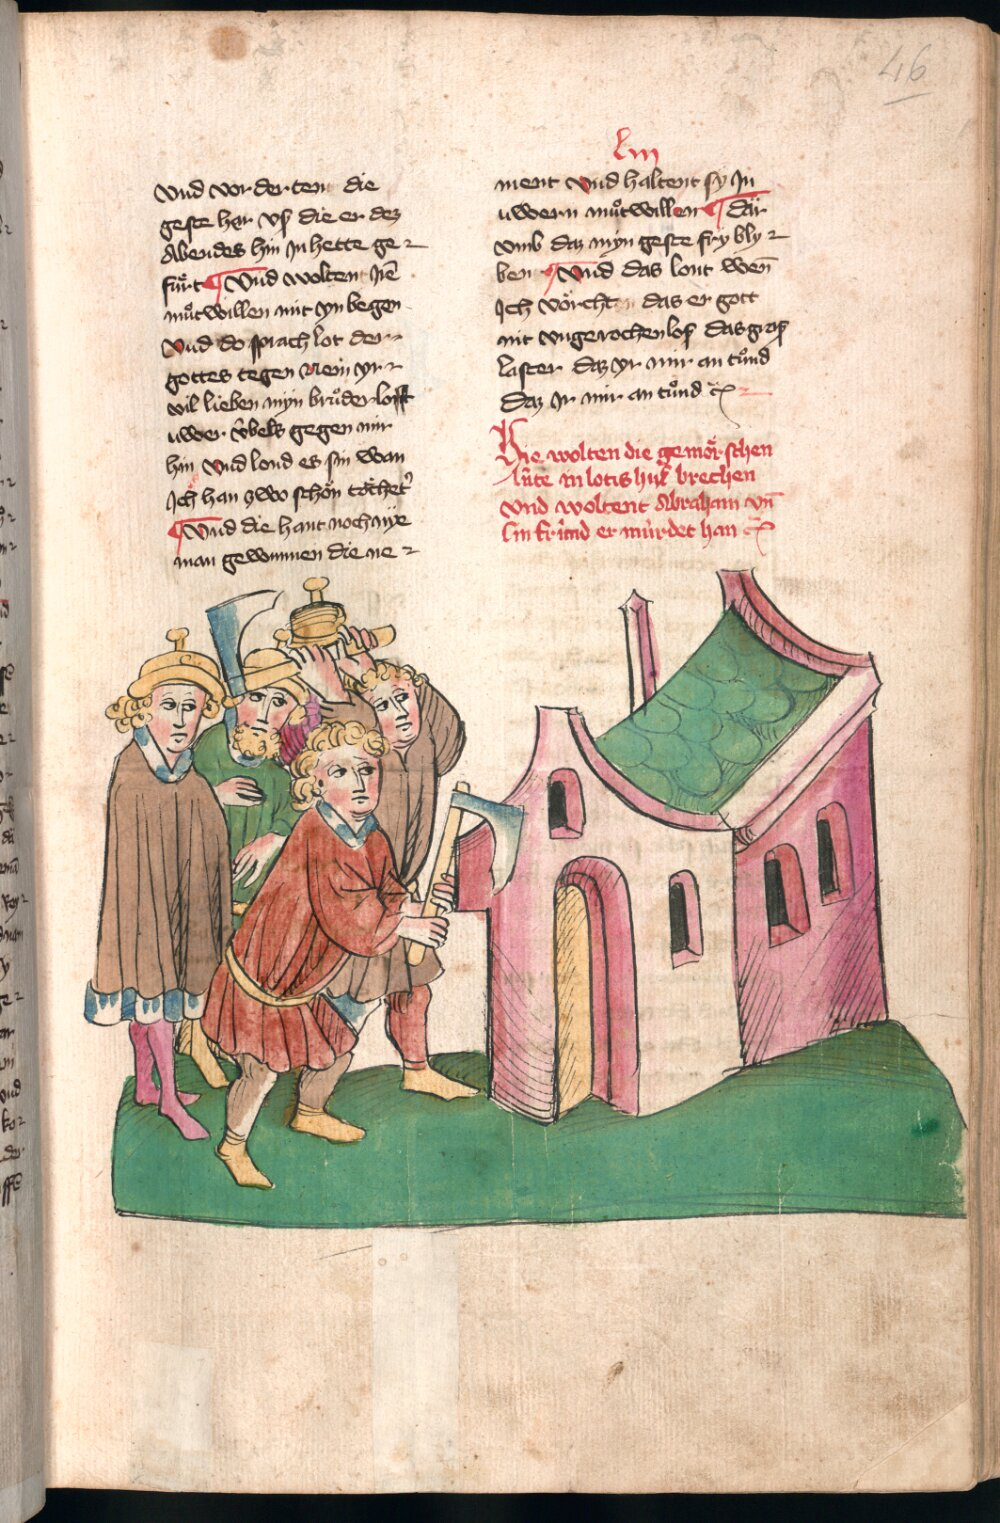 46
liij
vnd vorderten die
geste har vß die er dez
Abendes hin In hette ge
fuͤrt Vnd wolten Irē
muͦtwillen mit yn began
Vnd do sprach lot der
gottes tegen Nein yr
vil lieben myn bruͦder lost
uwer v̈bels gegen mir
hin vnd lond es sin wan
Ich han zwo schoͤn toͤchter
Vnd die hant noch nÿe
man gewunnen die ne
ment vnd haltent sy In
uwern muͦtwillen dar
vmb daz myn geste fry bly
ben Vnd das lont wen̄
Ich voͤrcht das er gott
nit vngerochen loß das groß
laster daz yr mir an tuͦnd
daz Ir mir an tuͦnd ⁊c
Hie wolten die gemoͤrschen
luͤte in lotis huß brechen
vnd woltent Abraham vn̄
sin fruͤnd er muͤrdet han ⁊c